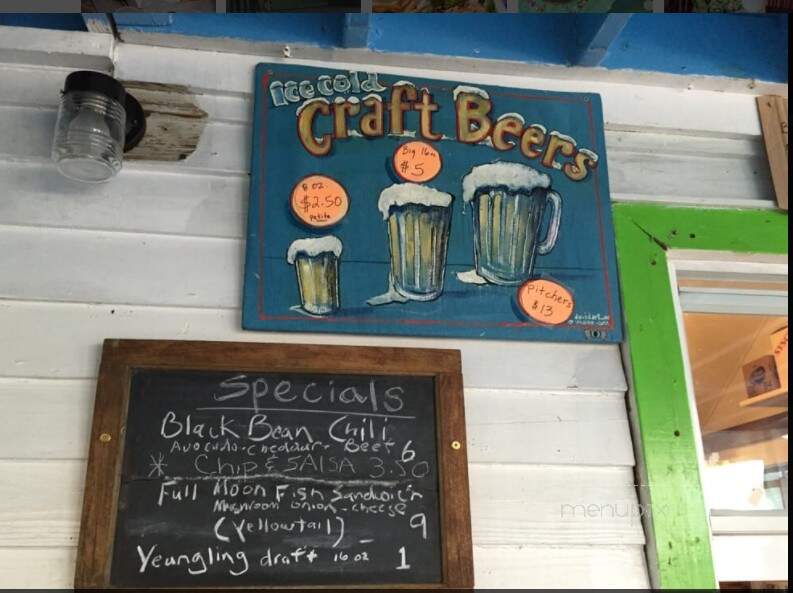 ice cold
Craft Beers
8 oz.
$2.50
Petite
Big 16oz
$5
Pitchers
$13
Specials
Black Bean Chili
Avocado-cheddar-Beef 6
* Chip & SALSA 3.50
Full Moon Fish Sandwich
Mushroom onion-cheese
(Yellowtail) - 9
Yeungling draft 16 oz 1
menupix